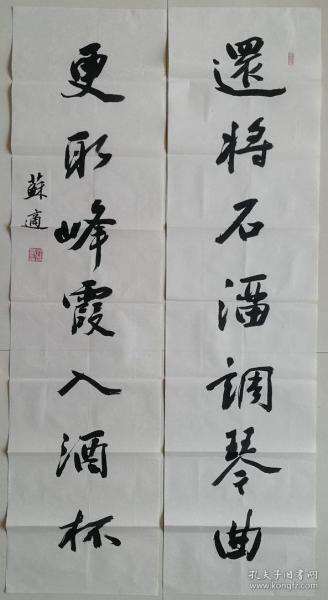 還將石溜調琴曲
更取峰霞入酒杯
蘇適
孔夫子旧书网
www.kongfz.com